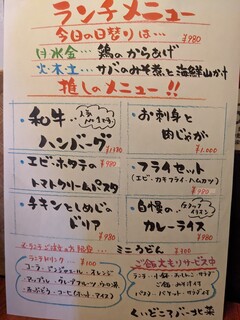 ランチメニュー
今日の日替りは… ¥980
月・水・金… 鶏のからあげ
火・木・土… サバのみそ煮と海鮮山かけ
推しのメニュー!!
・和牛ハンバーグ
人気No.1
・お刺身と肉じゃが
¥1,000
・エビ・ホタテのトマトクリームパスタ
¥980
・フライセット
(エビ・カキフライ・ハムカツ)
¥980
・チキンとしめじのドリア
¥980
・自慢のカレーライス
¥980
ミニうどん ¥300
ランチドリンク ¥100
コーラ・ジンジャエール・オレンジ
アップル・グレープフルーツ・
コーヒー(ホット・アイス)
ご飯大もりサービス中
ランチ・小鉢・みそしる・サラダ
ご飯
パスタ・バケット・サラダ
くいどころバー北菜